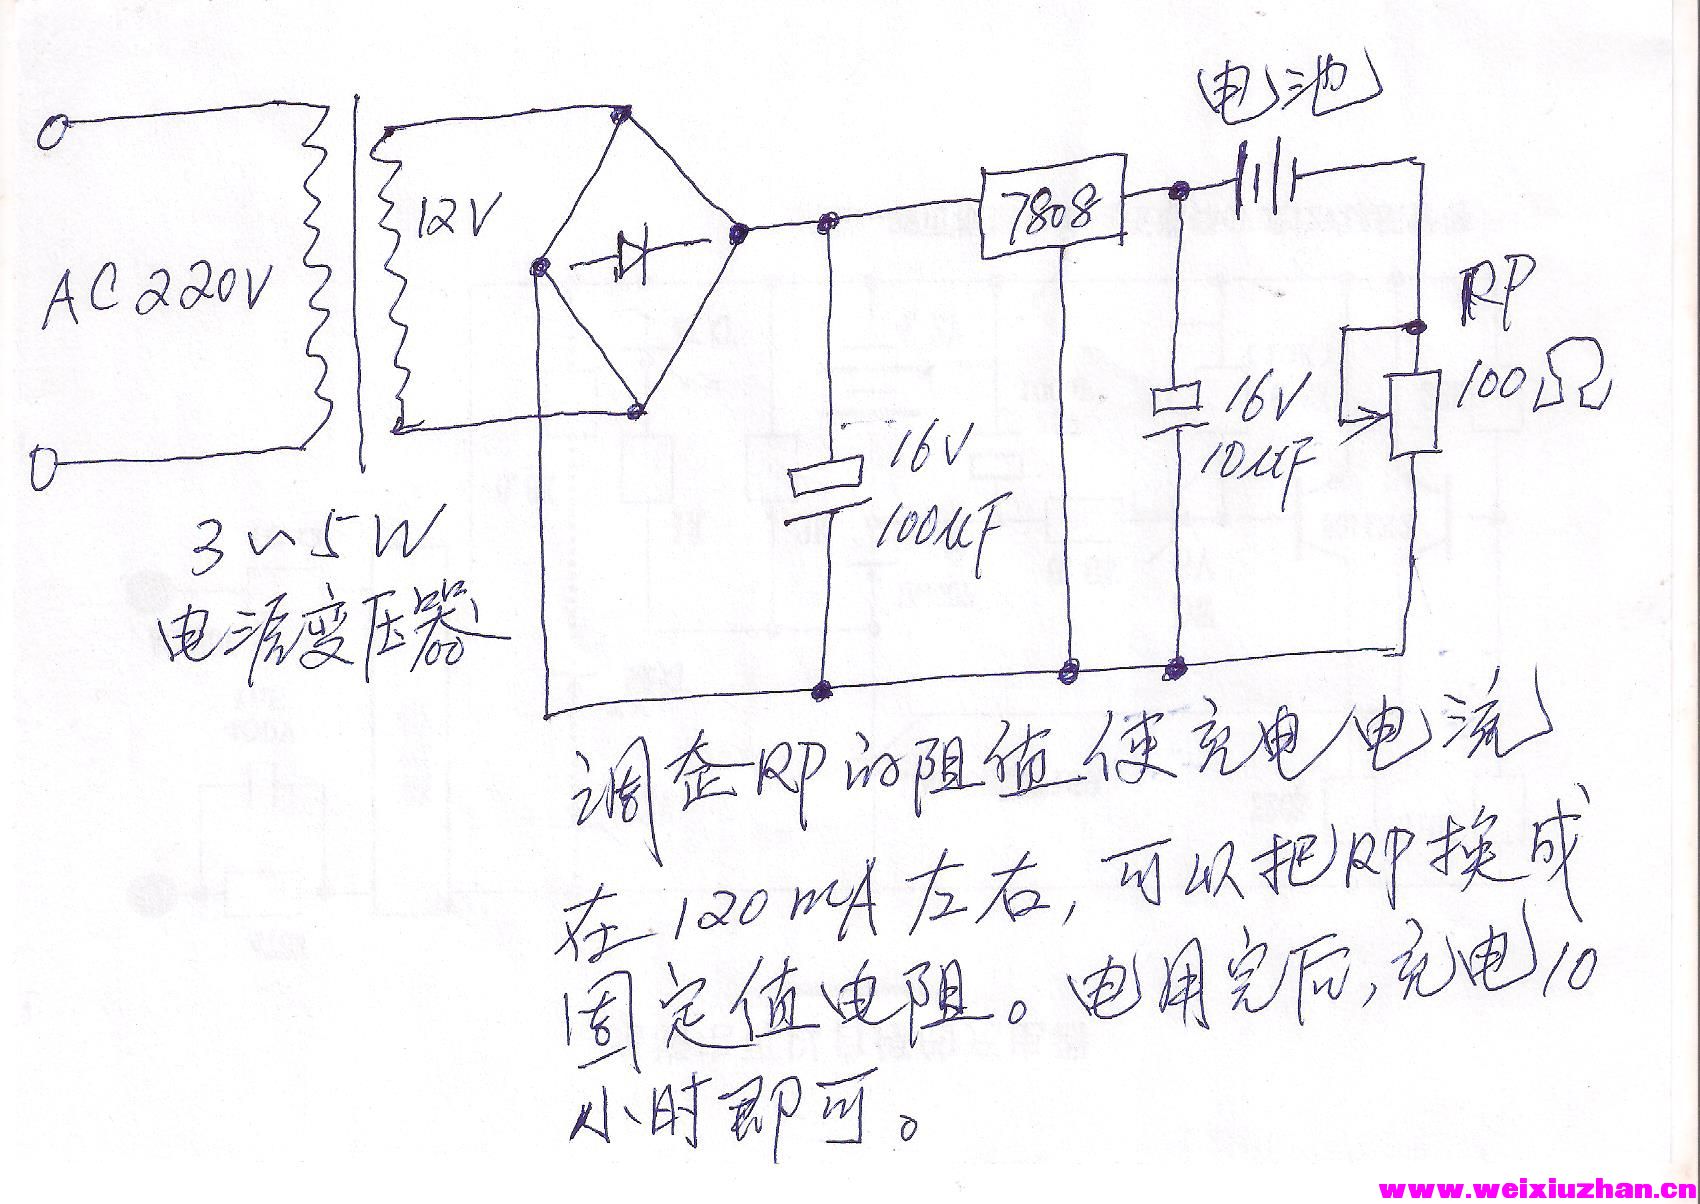 电池
12V
7808
AC 220V
RP
100Ω
16V
10μF
16V
100μF
3~5W
电源变压器
调整RP的阻值使充电电流
在120mA左右,可以把RP换成
固定值电阻。电用完后,充电10
小时即可。
www.weixiuzhan.cn